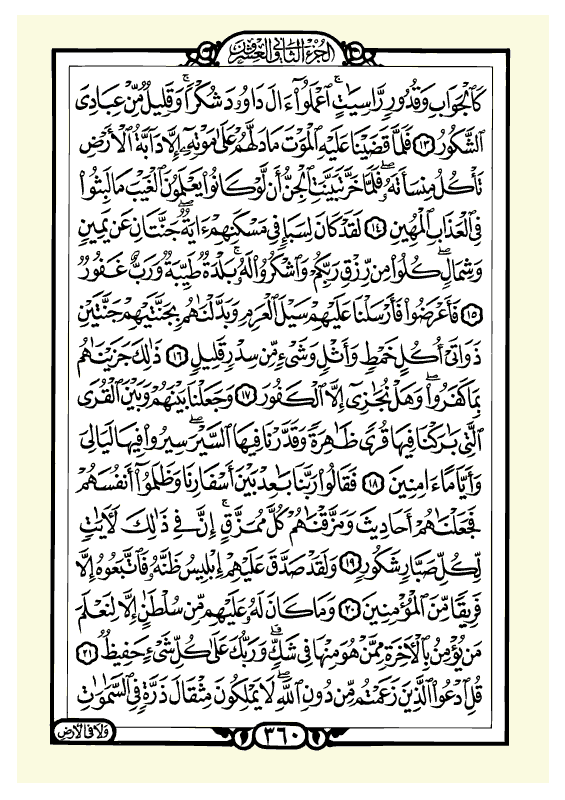 الجزء الثاني والعشرون
كَالْجَوَابِ وَقُدُورٍ رَّاسِيَاتٍ ۚ اعْمَلُوا آلَ دَاوُودَ شُكْرًا ۚ وَقَلِيلٌ مِّنْ عِبَادِيَ
الشَّكُورُ ۝١٣ فَلَمَّا قَضَيْنَا عَلَيْهِ الْمَوْتَ مَا دَلَّهُمْ عَلَىٰ مَوْتِهِ إِلَّا دَابَّةُ الْأَرْضِ
تَأْكُلُ مِنسَأَتَهُ ۖ فَلَمَّا خَرَّ تَبَيَّنَتِ الْجِنُّ أَن لَّوْ كَانُوا يَعْلَمُونَ الْغَيْبَ مَا لَبِثُوا
فِي الْعَذَابِ الْمُهِينِ ۝١٤ لَقَدْ كَانَ لِسَبَإٍ فِي مَسْكَنِهِمْ آيَةٌ ۖ جَنَّتَانِ عَن يَمِينٍ
وَشِمَالٍ ۖ كُلُوا مِن رِّزْقِ رَبِّكُمْ وَاشْكُرُوا لَهُ ۚ بَلْدَةٌ طَيِّبَةٌ وَرَبٌّ غَفُورٌ
۝١٥ فَأَعْرَضُوا فَأَرْسَلْنَا عَلَيْهِمْ سَيْلَ الْعَرِمِ وَبَدَّلْنَاهُم بِجَنَّتَيْهِمْ جَنَّتَيْنِ
ذَوَاتَيْ أُكُلٍ خَمْطٍ وَأَثْلٍ وَشَيْءٍ مِّن سِدْرٍ قَلِيلٍ ۝١٦ ذَٰلِكَ جَزَيْنَاهُم
بِمَا كَفَرُوا ۖ وَهَلْ نُجَازِي إِلَّا الْكَفُورَ ۝١٧ وَجَعَلْنَا بَيْنَهُمْ وَبَيْنَ الْقُرَى
الَّتِي بَارَكْنَا فِيهَا قُرًى ظَاهِرَةً وَقَدَّرْنَا فِيهَا السَّيْرَ ۖ سِيرُوا فِيهَا لَيَالِيَ
وَأَيَّامًا آمِنِينَ ۝١٨ فَقَالُوا رَبَّنَا بَاعِدْ بَيْنَ أَسْفَارِنَا وَظَلَمُوا أَنفُسَهُمْ
فَجَعَلْنَاهُمْ أَحَادِيثَ وَمَزَّقْنَاهُمْ كُلَّ مُمَزَّقٍ ۚ إِنَّ فِي ذَٰلِكَ لَآيَاتٍ
لِّكُلِّ صَبَّارٍ شَكُورٍ ۝١٩ وَلَقَدْ صَدَّقَ عَلَيْهِمْ إِبْلِيسُ ظَنَّهُ فَاتَّبَعُوهُ إِلَّا
فَرِيقًا مِّنَ الْمُؤْمِنِينَ ۝٢٠ وَمَا كَانَ لَهُ عَلَيْهِم مِّن سُلْطَانٍ إِلَّا لِنَعْلَمَ
مَن يُؤْمِنُ بِالْآخِرَةِ مِمَّنْ هُوَ مِنْهَا فِي شَكٍّ ۗ وَرَبُّكَ عَلَىٰ كُلِّ شَيْءٍ حَفِيظٌ ۝٢١
قُلِ ادْعُوا الَّذِينَ زَعَمْتُم مِّن دُونِ اللَّهِ ۖ لَا يَمْلِكُونَ مِثْقَالَ ذَرَّةٍ فِي السَّمَاوَاتِ
وَلَا فِي الْأَرْضِ
٣٦٠